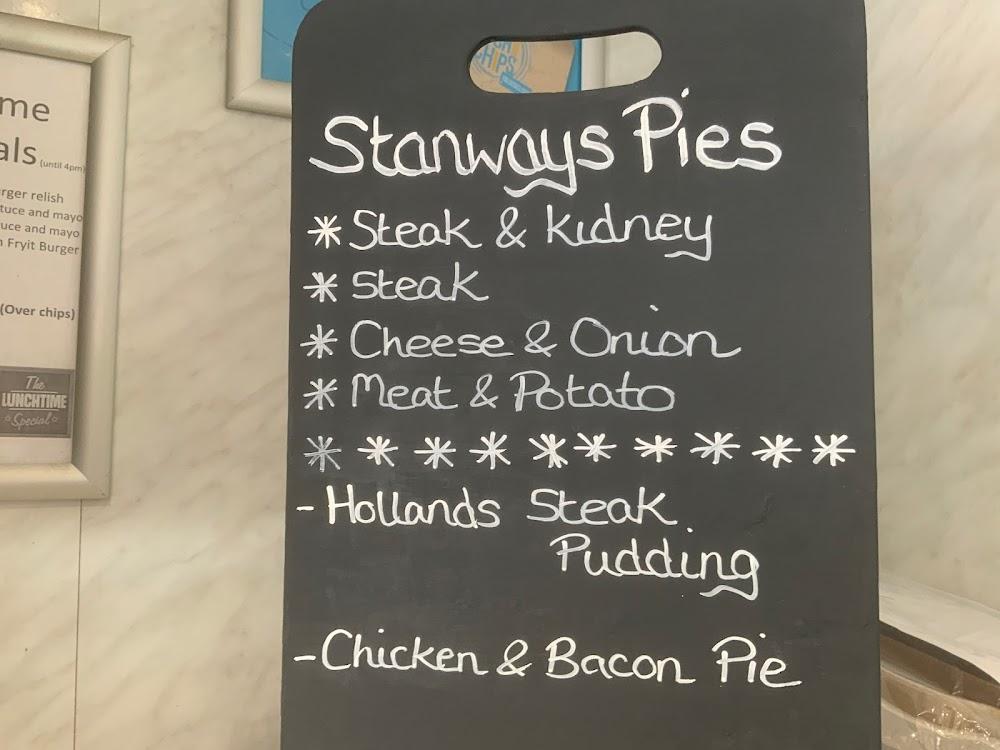 me
als (until 4pm)
rger relish
tuce and mayo
uce and mayo
n Fryit Burger
(Over chips)
The
LUNCHTIME
Special
CHIPS
Stanways Pies
* Steak & Kidney
* Steak
* Cheese & Onion
* Meat & Potato
* * * * * * * * * *
- Hollands Steak
Pudding
- Chicken & Bacon Pie